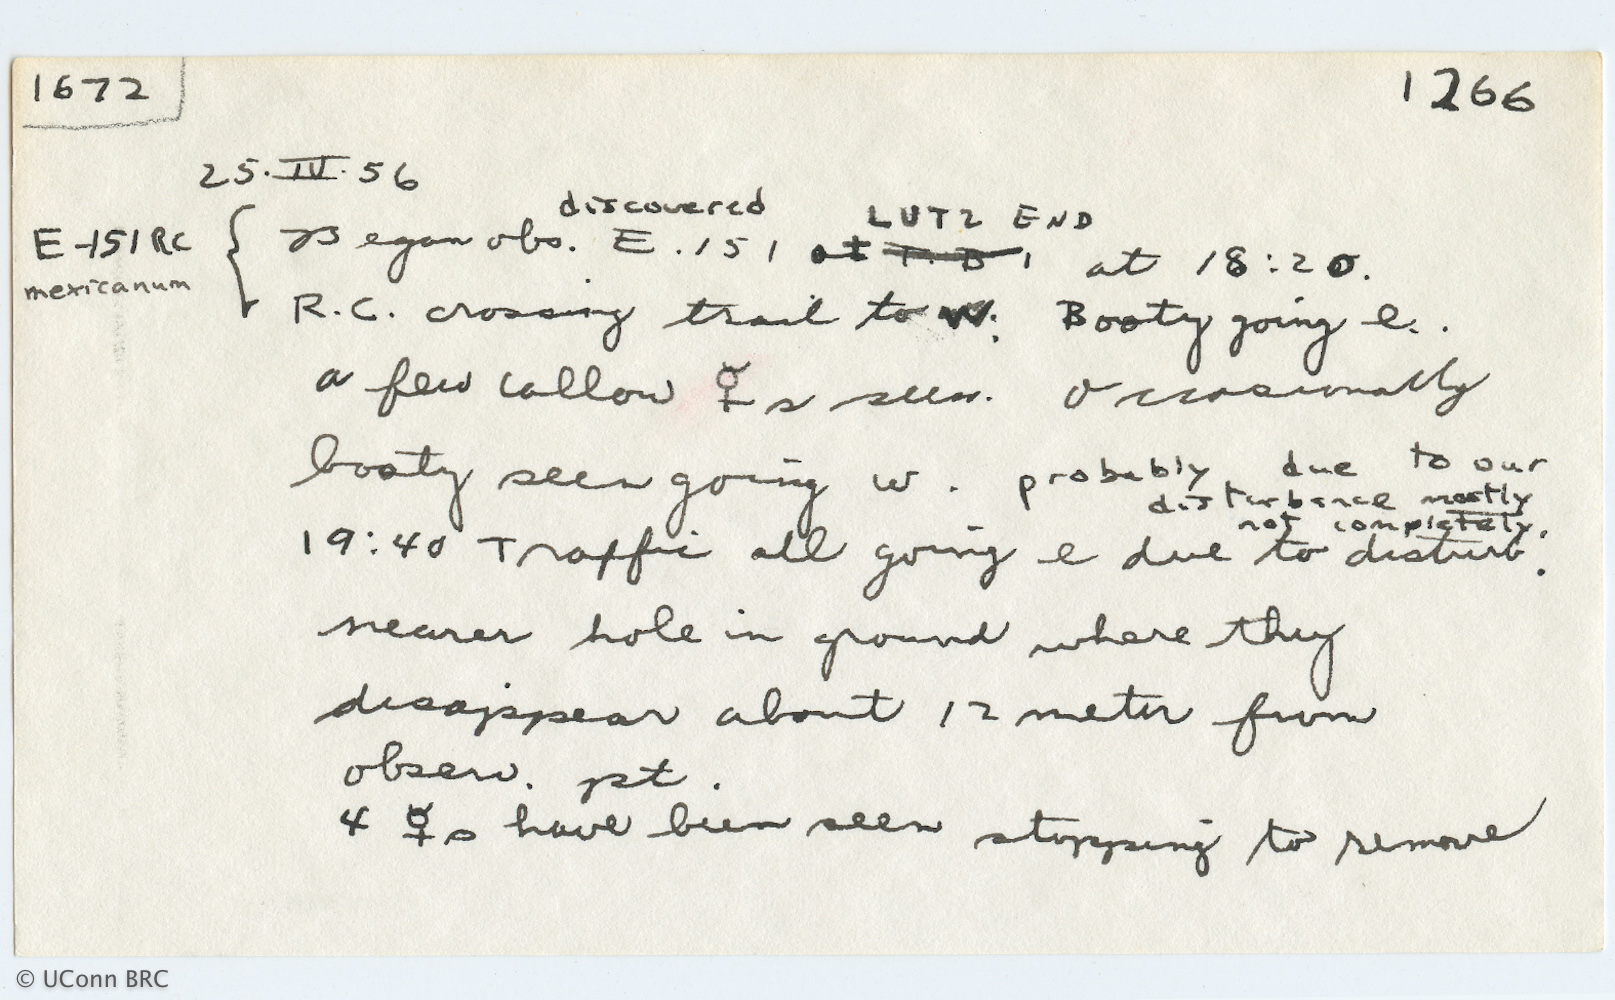 1672
1266
25.IV.56
discovered LUTZ END
E-151 RC { Began obs. E.151 at at 18:20.
mexicanum R.C. crossing trail to W. Booty going e..
a few callow ☿s seen. Occasionally
booty seen going w. probably due to our
disturbance mostly
not completely.
19:40 Traffic all going e due to disturb.
nearer hole in ground where they
disappear about 12 meter from
observ. pt.
4 ☿s have been seen stopping to remove
© UConn BRC